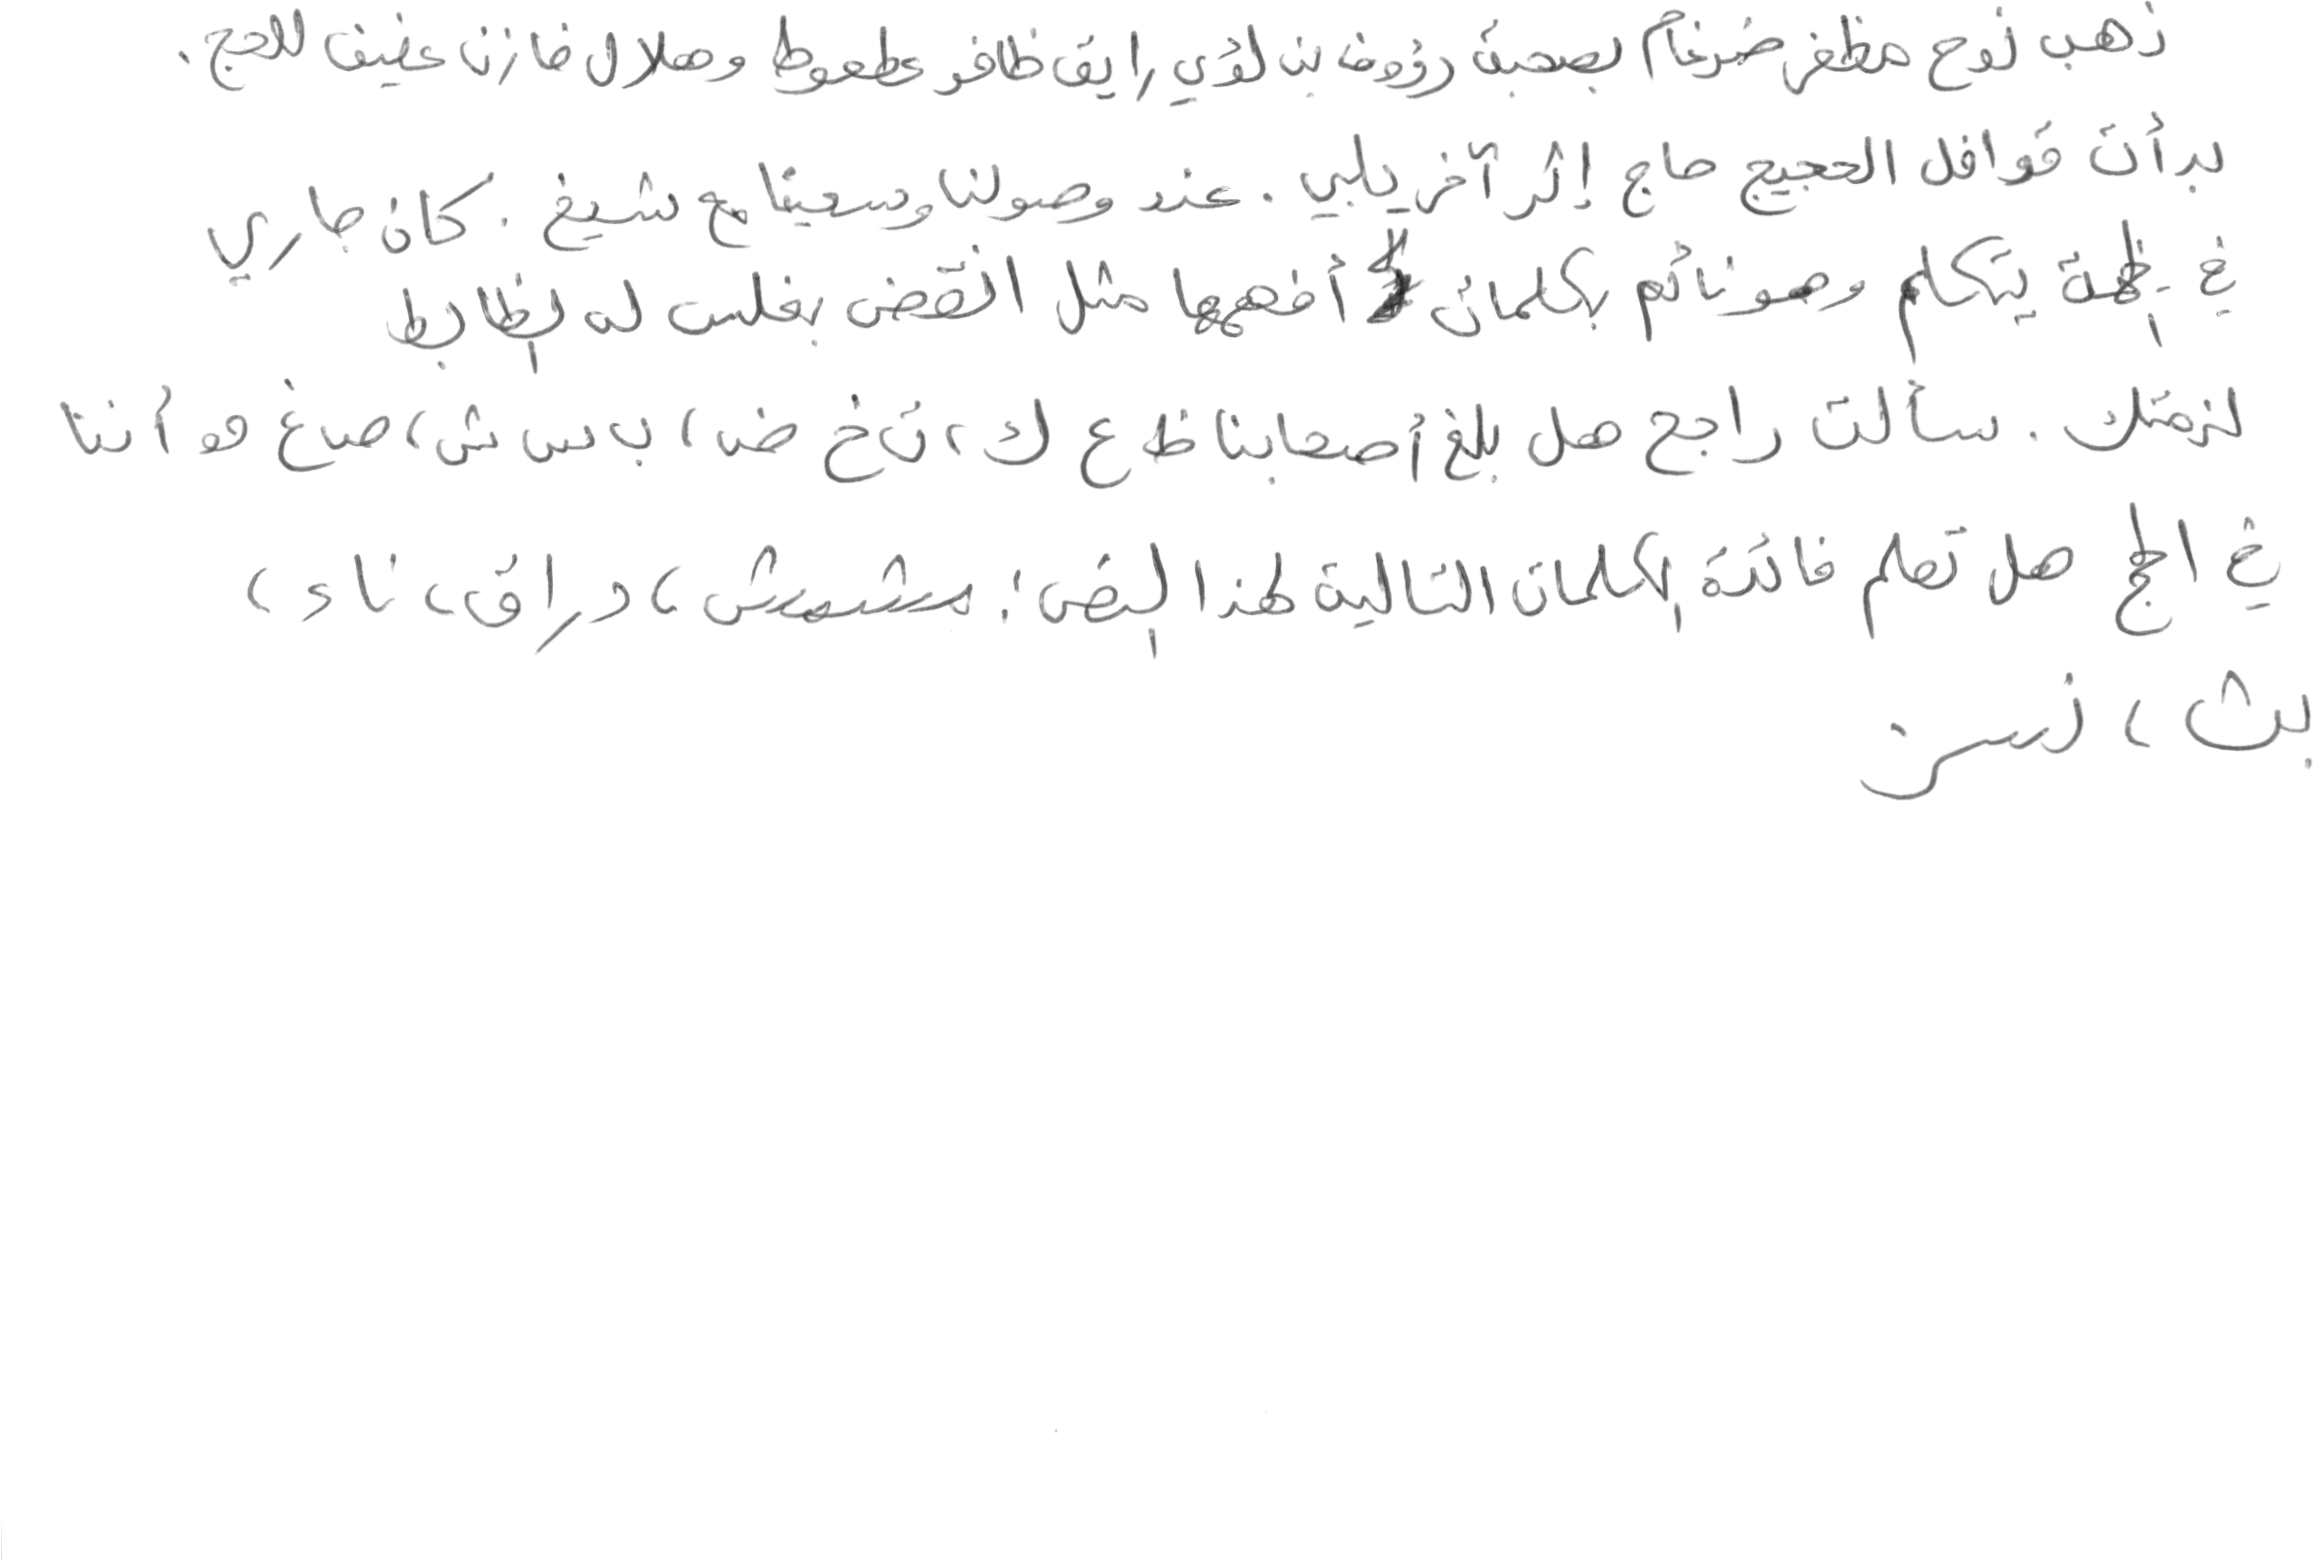 ذهب نوح مظفر ضرغام بصحبة رؤوف بن لؤي رايق ظافر عطعوط وهلال فازن عفيف للحج.
بدأت قوافل الحجيج حاج إثر آخر يلبي. عند وصولنا وسعينا مع شيخ. كان جاري
في الخيمة يتكلم وهو نائم بكلمات لا أفهمها مثل انقضض بغلس له الظابط
لزمتك. سألت راجح هل بلغ أصحابنا ظ ع ك، ق خ ض، ب س ش، ص غ و أننا
في الحج هل تعلم فائدة الكلمات التالية لهذا البض: مشمش، دراق، ناد،
بث، نسر.